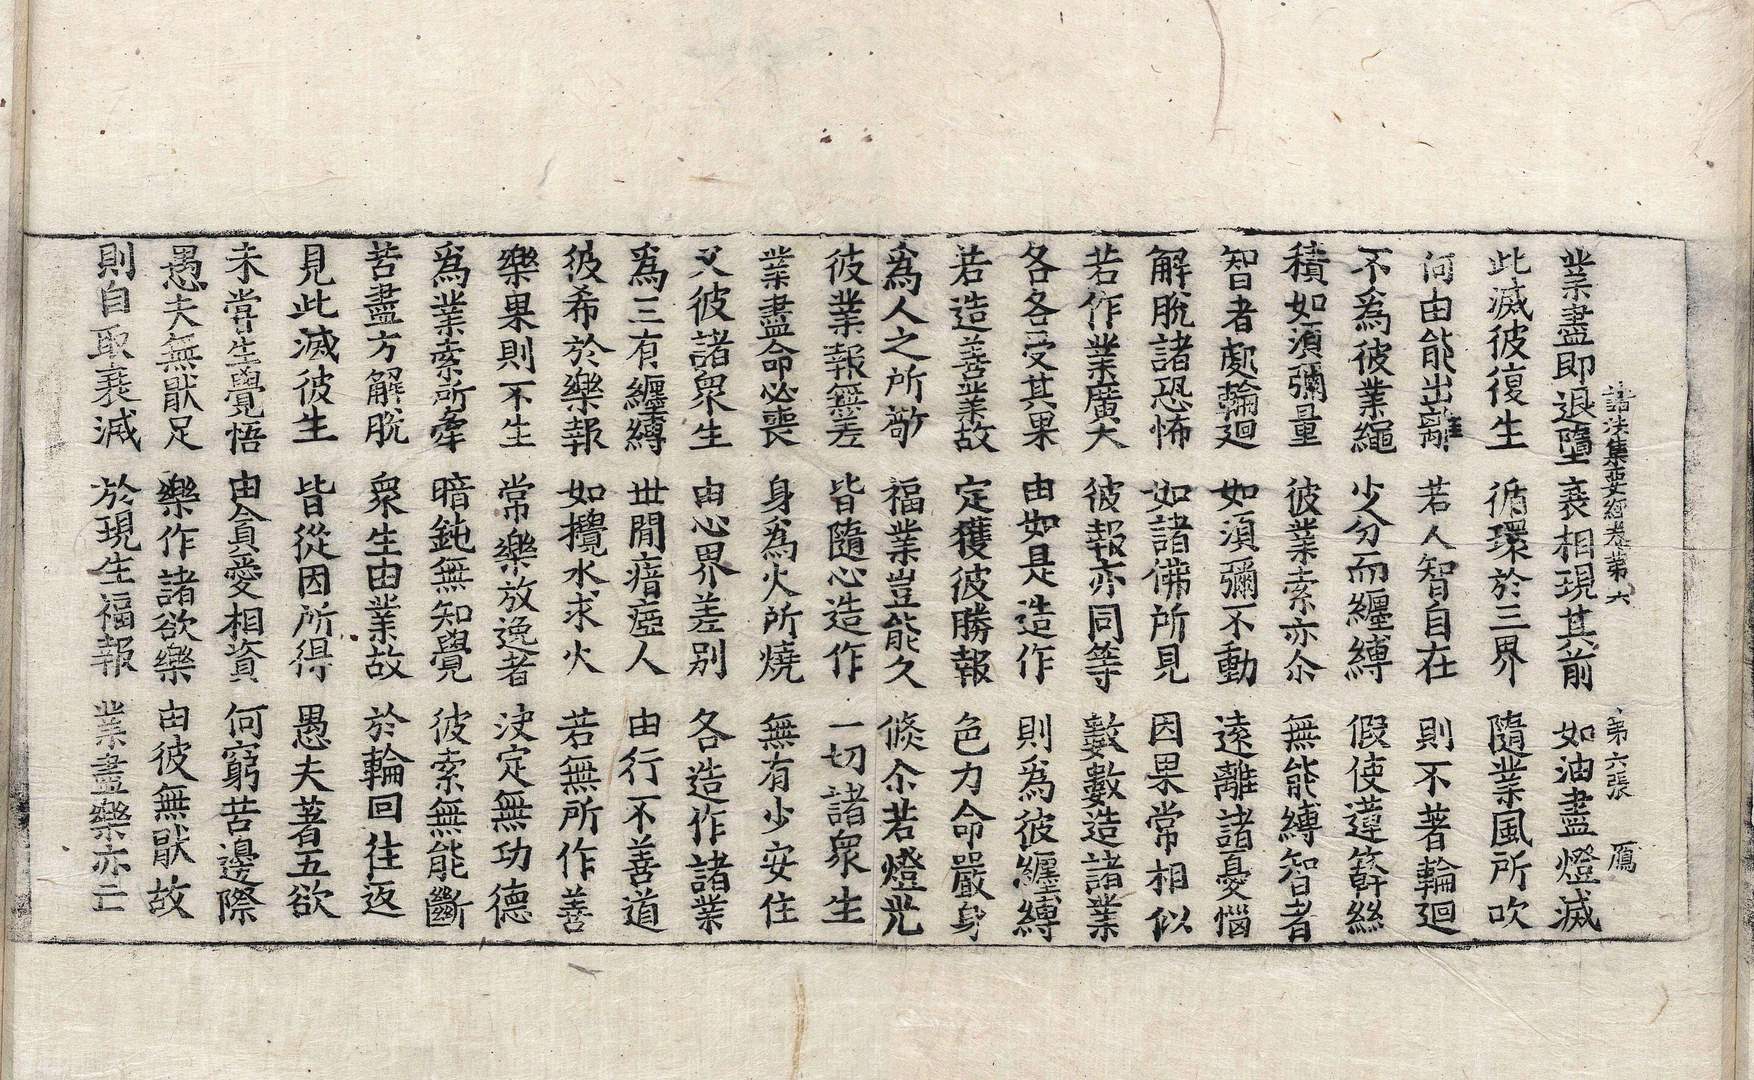 諸法集要經卷第六 第六張 鴈
業盡即退墮 衰相現其前 如油盡燈滅
此滅彼復生 循環於三界 隨業風所吹
何由能出離 若人智自在 則不著輪廻
不爲彼業繩 少分而纏縛 假使蓮簳絲
積如須彌量 彼業索亦尒 無能縛智者
智者處輪廻 如須彌不動 遠離諸憂惱
解脫諸恐怖 如諸佛所見 因果常相似
若作業廣大 彼報亦同等 數數造諸業
各各受其果 由如是造作 則爲彼纏縛
若造善業故 定獲彼勝報 色力命嚴身
爲人之所敬 福業豈能久 倏尒若燈光
彼業報無差 皆隨心造作 一切諸衆生
業盡命必喪 身爲火所燒 無有少安住
又彼諸衆生 由心界差別 各造作諸業
爲三有纏縛 世間瘖瘂人 由行不善道
彼希於樂報 如攪水求火 若無所作善
樂果則不生 常樂放逸者 決定無功德
爲業索所牽 暗鈍無知覺 彼索無能斷
苦盡方解脫 衆生由業故 於輪回往返
見此滅彼生 皆從因所得 愚夫著五欲
未嘗生覺悟 由貪愛相資 何窮苦邊際
愚夫無猒足 樂作諸欲樂 由彼無猒故
則自取衰減 於現生福報 業盡樂亦亡